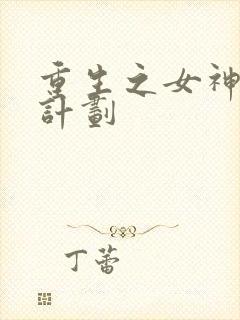 重生之女神
計劃
丁蕾